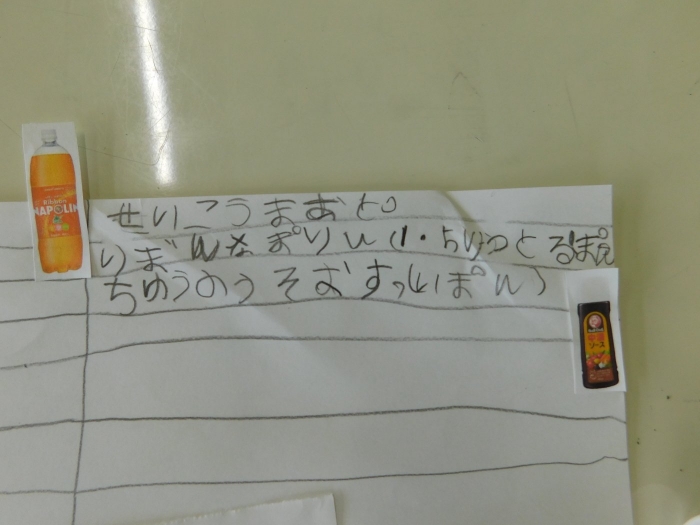 せいこうまあと
りぼんなぽりん(1.5りっとるぽん
ちゅうのうそおすっしぽん)
Ribbon
NAPOLIN
ソース